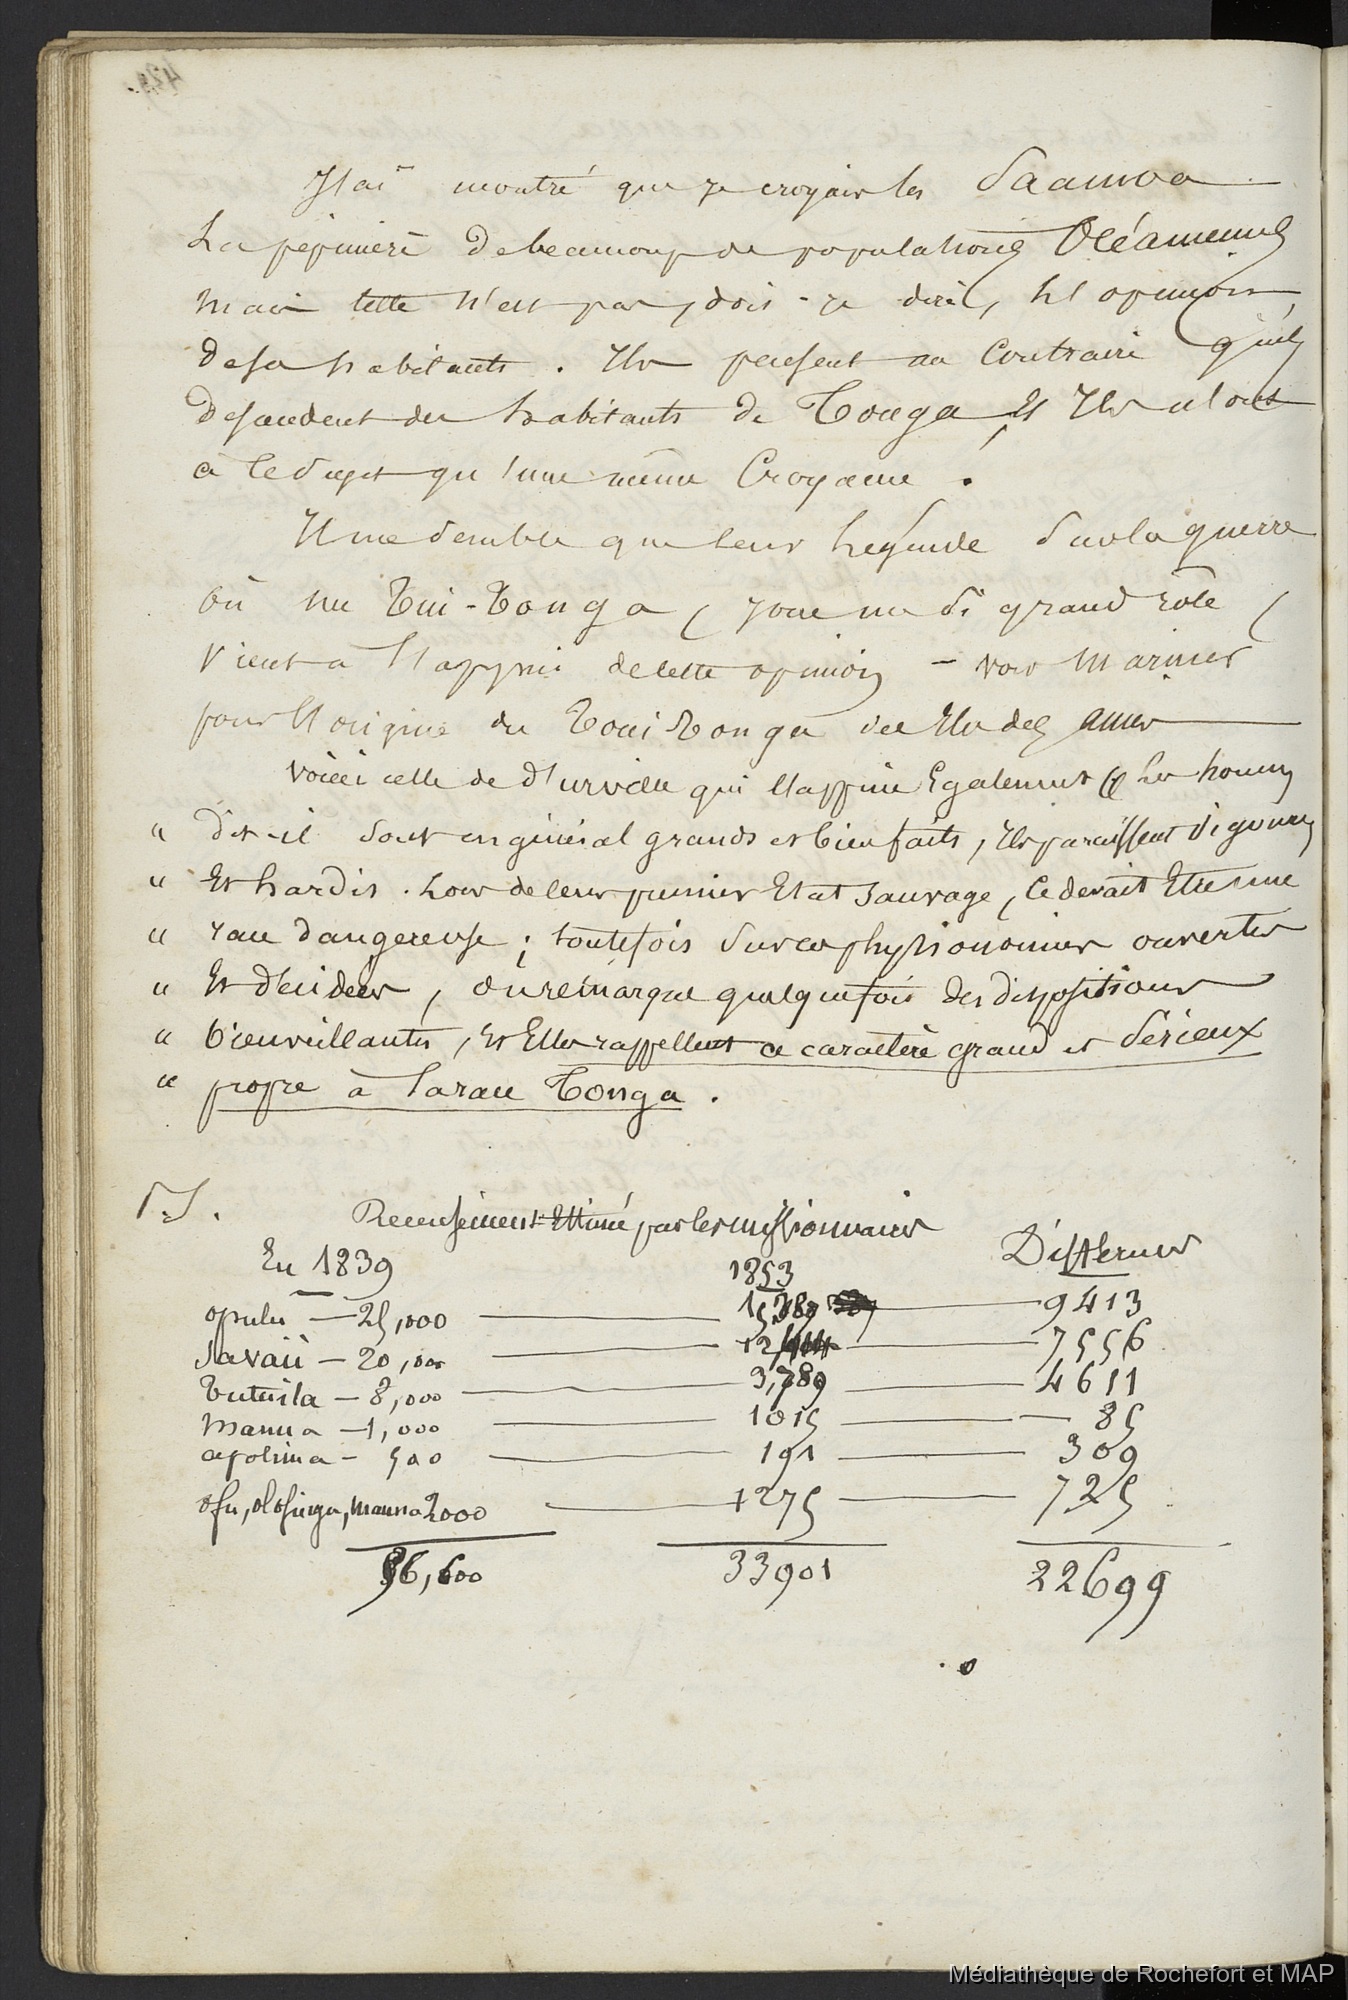 J'ai montré que je croyais les Saamoa
La pépinière de beaucoup de populations Océaniennes
mais telle n'est pas, dois-je dire, l'opinion
de ses habitants. Ils pensent au contraire qu'ils
descendent des habitants de Tonga, Et Ils n'ont
à ce sujet qu'une même Croyance.
Il me semble que leur Légende sur la guerre
où un Tui-Tonga ( joue un si grand rôle (
vient à l'appui de cette opinion - voir Mariner
pour l'origine du Toui Tonga
voici celle de d'urville qui l'appuie Également les hommes
" dit-il sont en général grands et bien faits, Ils paraissent vigoureux
" Et hardis. Lors de leur premier Etat sauvage, ce devait Etre une
" race dangereuse ; toutefois sur ces physionomies ouvertes
" Et décidées, on remarque quelquefois des dispositions
" bienveillantes, Et Elles rappellent ce caractère grand et sérieux
" propre à la race Tonga.
P.S. Recensement Estimé par les missionnaires
En 1839 1853 Différences
opulu — 25,000 15,587 9413
Savaïi — 20,000 12,444 7556
Tutuila — 8,000 3,389 4611
Manua — 1,000 1015 — 85
apolima — 500 191 309
ofu, olosinga, manua 2000 1275 725
56,600 33901 22699
Médiathèque de Rochefort et MAP